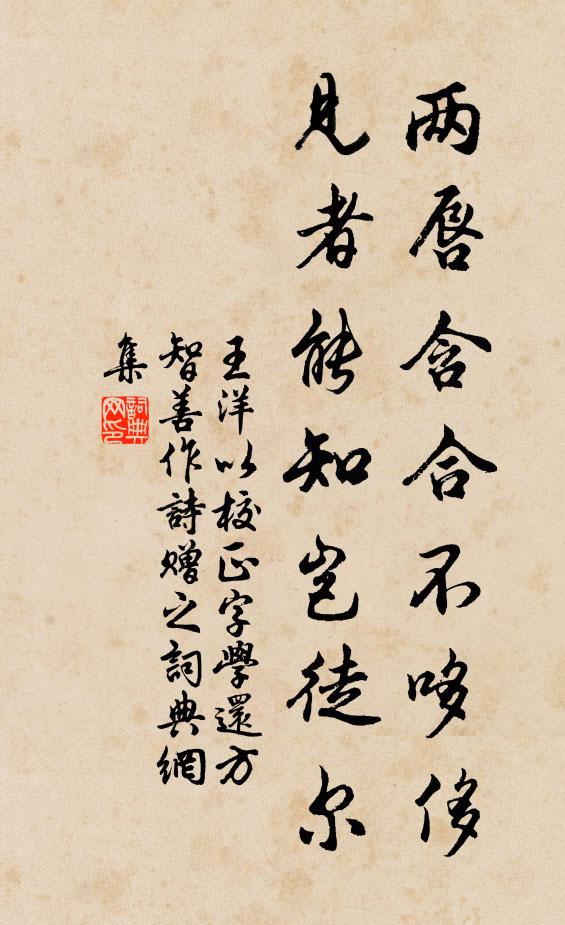 两唇含合不哆侈
見者能知岂徒尔
王洋以校正字學還方
智善作詩赠之詞典網
集
詞典网印